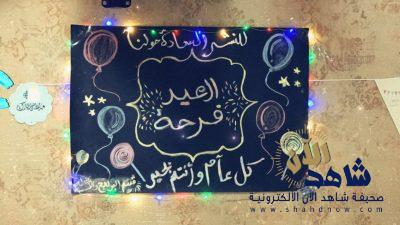 لننشر السعادة حولنا
العيد
فرحة
كل عام وأنتم بخير
شاهد الآن
صحيفة شاهد الآن الالكترونية
www.shahdnow.com